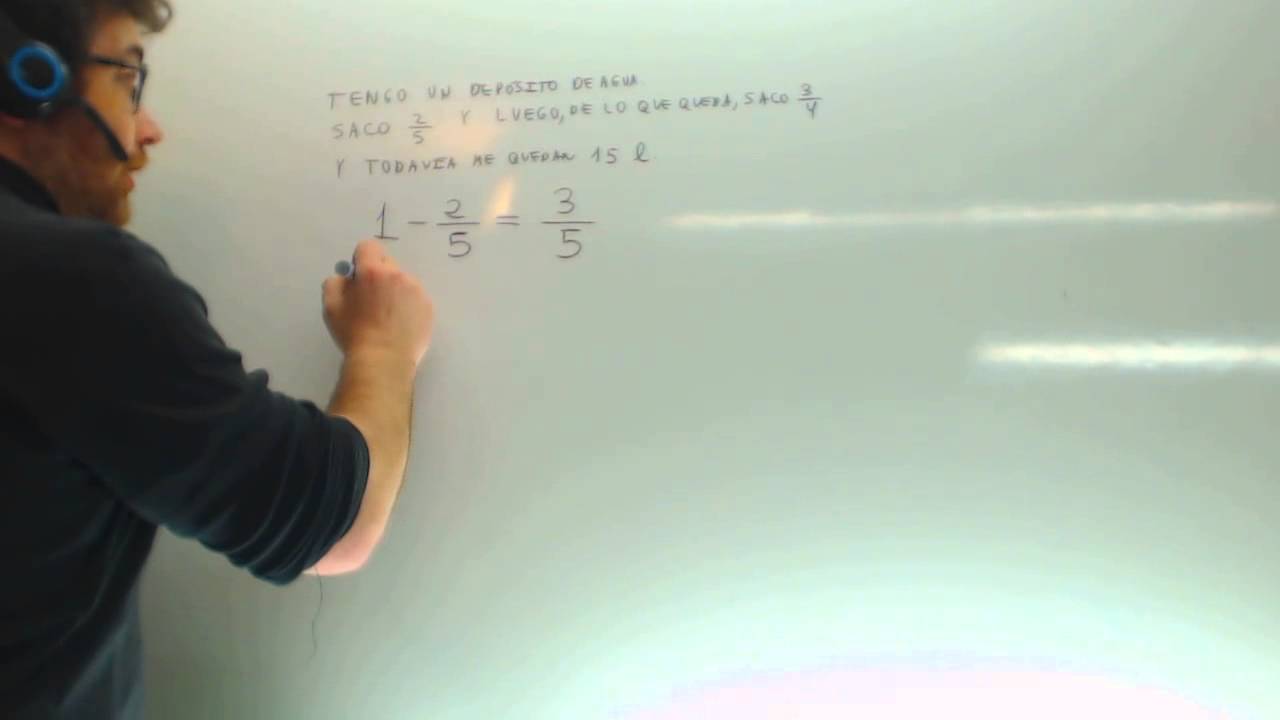 TENGO UN DEPOSITO DE AGUA.
SACO 2/5 Y LUEGO, DE LO QUE QUEDA, SACO 3/4
Y TODAVIA ME QUEDAN 15 l.
1 - 2/5 = 3/5